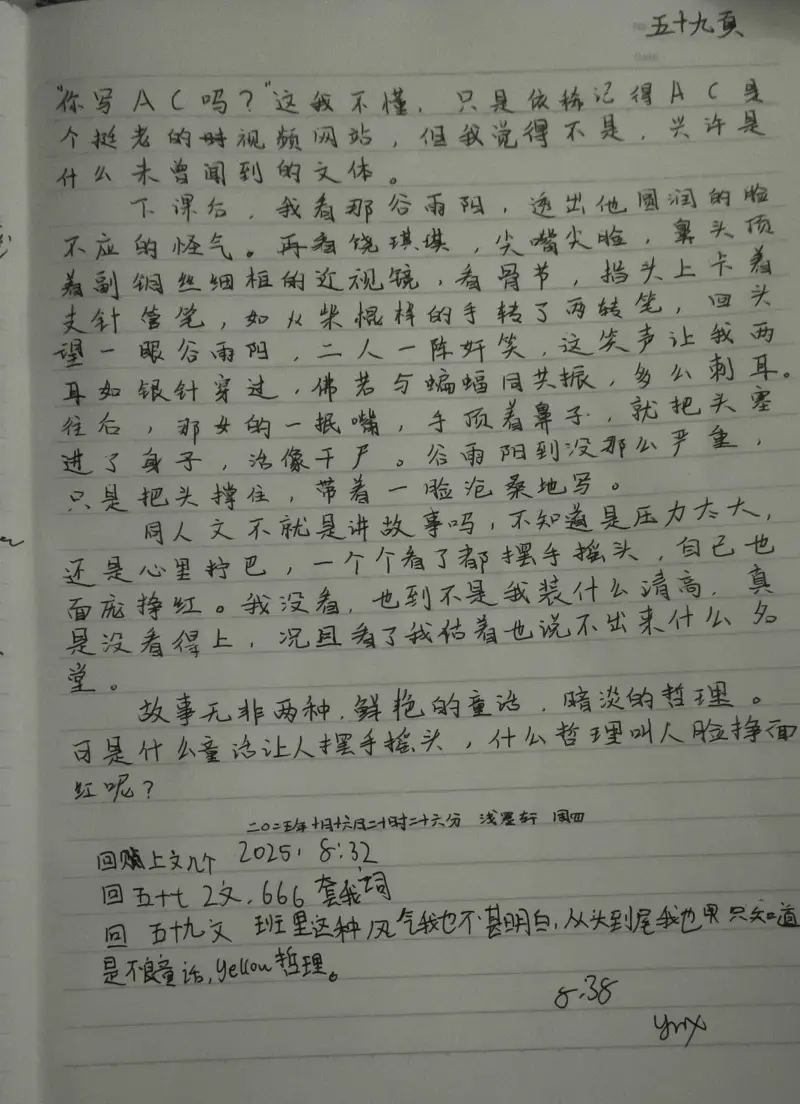 五十九頁
"你写AC吗？"这我不懂，只是依稀记得AC是
个挺老的视频网站，但我觉得不是，兴许是
什么未曾闻到的文体。
下课后，我看那谷雨阳，透出他圆润的脸
不应的怪气。再看饶琪琪，尖嘴尖脸，鼻头顶
着副铜丝细框的近视镜，看骨节，指头上卡着
支针管笔，如火柴棍样的手转了两转笔，回头
望一眼谷雨阳，二人一阵奸笑，这笑声让我两
耳如银针穿过，佛若与蝙蝠同共振，多么刺耳。
往后，那女的一抿嘴，手顶着鼻子，就把头塞
进了身子，活像干尸。谷雨阳到没那么严重，
只是把头撑住，带着一脸沧桑地写。
同人文不就是讲故事吗，不知道是压力太大，
还是心里拧巴，一个个看了都摆手摇头，自己也
面庞挣红。我没看，也到不是我装什么清高，真
是没看得上，况且看了我估着也说不出来什么名
堂。
故事无非两种，鲜艳的童话，暗淡的哲理。
可是什么童话让人摆手摇头，什么哲理叫人脸挣面
红呢？
二〇二五年十月十六日二十时二十六分 浅墨轩 周四
回贴上文几个 2025, 8:32
回五十七 2文，666 套我词
回 五十九文 班里这种风气我也不甚明白，从头到尾我也只知道
是不良童话，yellow哲理。
8.38
ynx